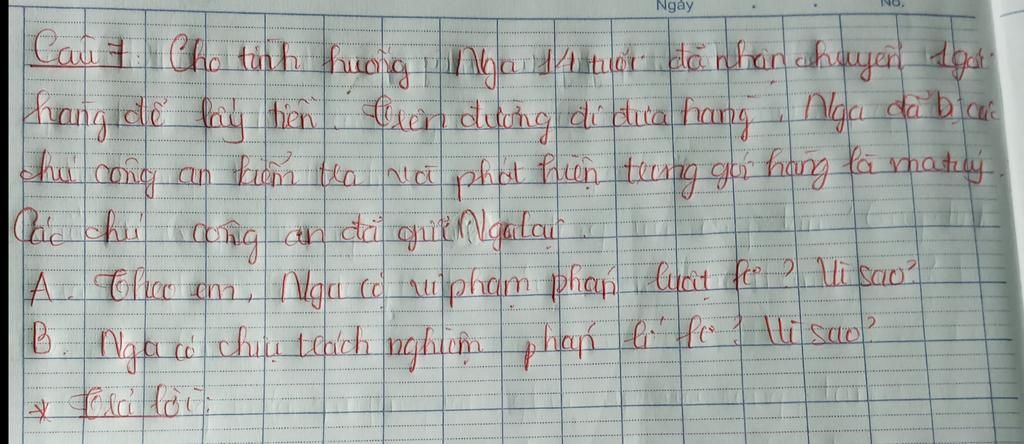 Ngày No.
Câu 7: Cho tình huống Nga 14 tuổi đã nhận chuyển 1 gói
hàng để lấy tiền. Trên đường đi đưa hàng, Nga đã bị các
chú công an kiểm tra và phát hiện trong gói hàng là ma túy.
Các chú công an đã giữ Nga lại.
A. Theo em, Nga có vi phạm pháp luật ko? Vì sao?
B. Nga có chịu trách nghiệm pháp lí ko? Vì sao?
* Trả lời: